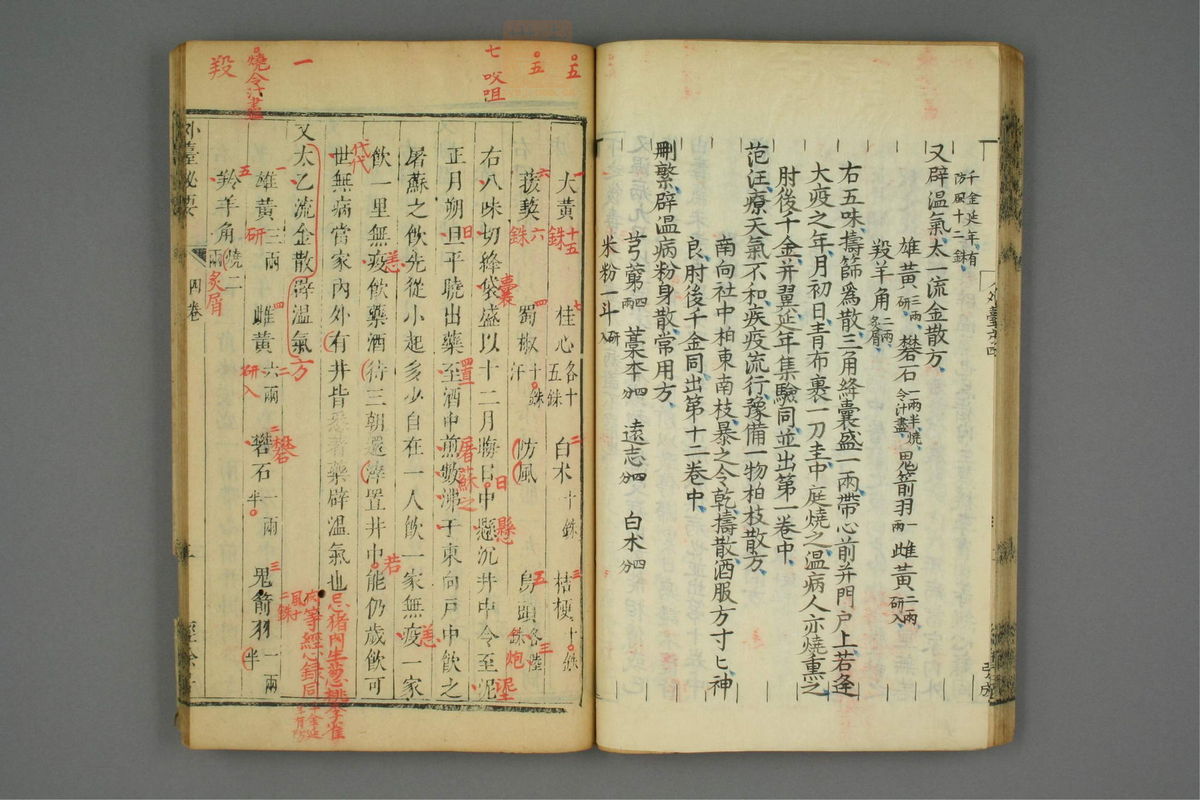 千金延年有
防風十二銖
又辟温氣太一流金散方
雄黃三兩研 礬石一兩半燒令汁盡 鬼箭羽一兩 雌黃二兩研入
羖羊角二兩炙屑
右五味擣篩為散三角絳囊盛一兩帶心前并門戶上若逢
大疫之年月初日青布裹一刀圭中庭燒之温病人亦燒熏之
肘後千金并翼延年集驗同並出第一卷中
范汪療天氣不和疾疫流行豫備一物柏枝散方
南向社中柏東南枝暴之令乾擣散酒服方寸匕神
良肘後千金同出第十二卷中
刪繁辟温病粉身散常用方
芎藭四兩 藁本四分 遠志四分 白朮四分
米粉一斗研入
五
五
七 㕮咀
一
燒令汁盡
羖
大黃十五銖 桂心各十五銖 白朮十銖 桔梗十銖
菝葜六銖 蜀椒十銖汗 防風 烏頭各六銖炮
右八味切絳袋盛以十二月晦日日中懸沉井中令至泥
正月朔旦平曉出藥至酒中煎數沸于東向戶中飲之
屠蘇之飲先從小起多少自在一人飲一家無疫一家
飲一里無疫飲藥酒待三朝還滓置井中能仍歲飲可
世無病當家內外有井皆悉著藥辟温氣也
忌猪肉生葱桃李雀
又太乙流金散辟温氣方
雄黃三兩研 雌黃六兩研入 礬石一兩半 鬼箭羽一兩半
羚羊角燒二兩炙屑
外臺祕要 四卷